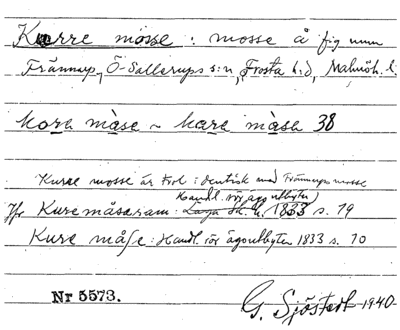 Kurre mosse : mosse å fig num
Frännarp, Ö-Sallerups s:n, Frosta h:d, Malmöh. l.
kora måse ~ kare måsa 38
Kurre mosse är trol. identisk med Frännarps mosse
Handl. rör äg. utbyten
Jfr Kuremåsaram: h. 1833 s. 19
Kure måse: Handl. rör ägoutbyten 1833 s. 10
Nr 5573.
G. Sjöstedt 1940